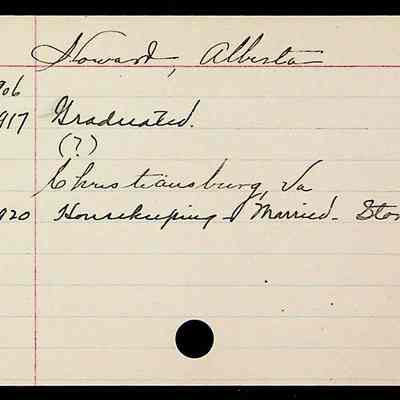 Howard, Alberta
906
917 Graduated.
(?)
Christiansburg, Va
920 Housekeeping - Married - Sto